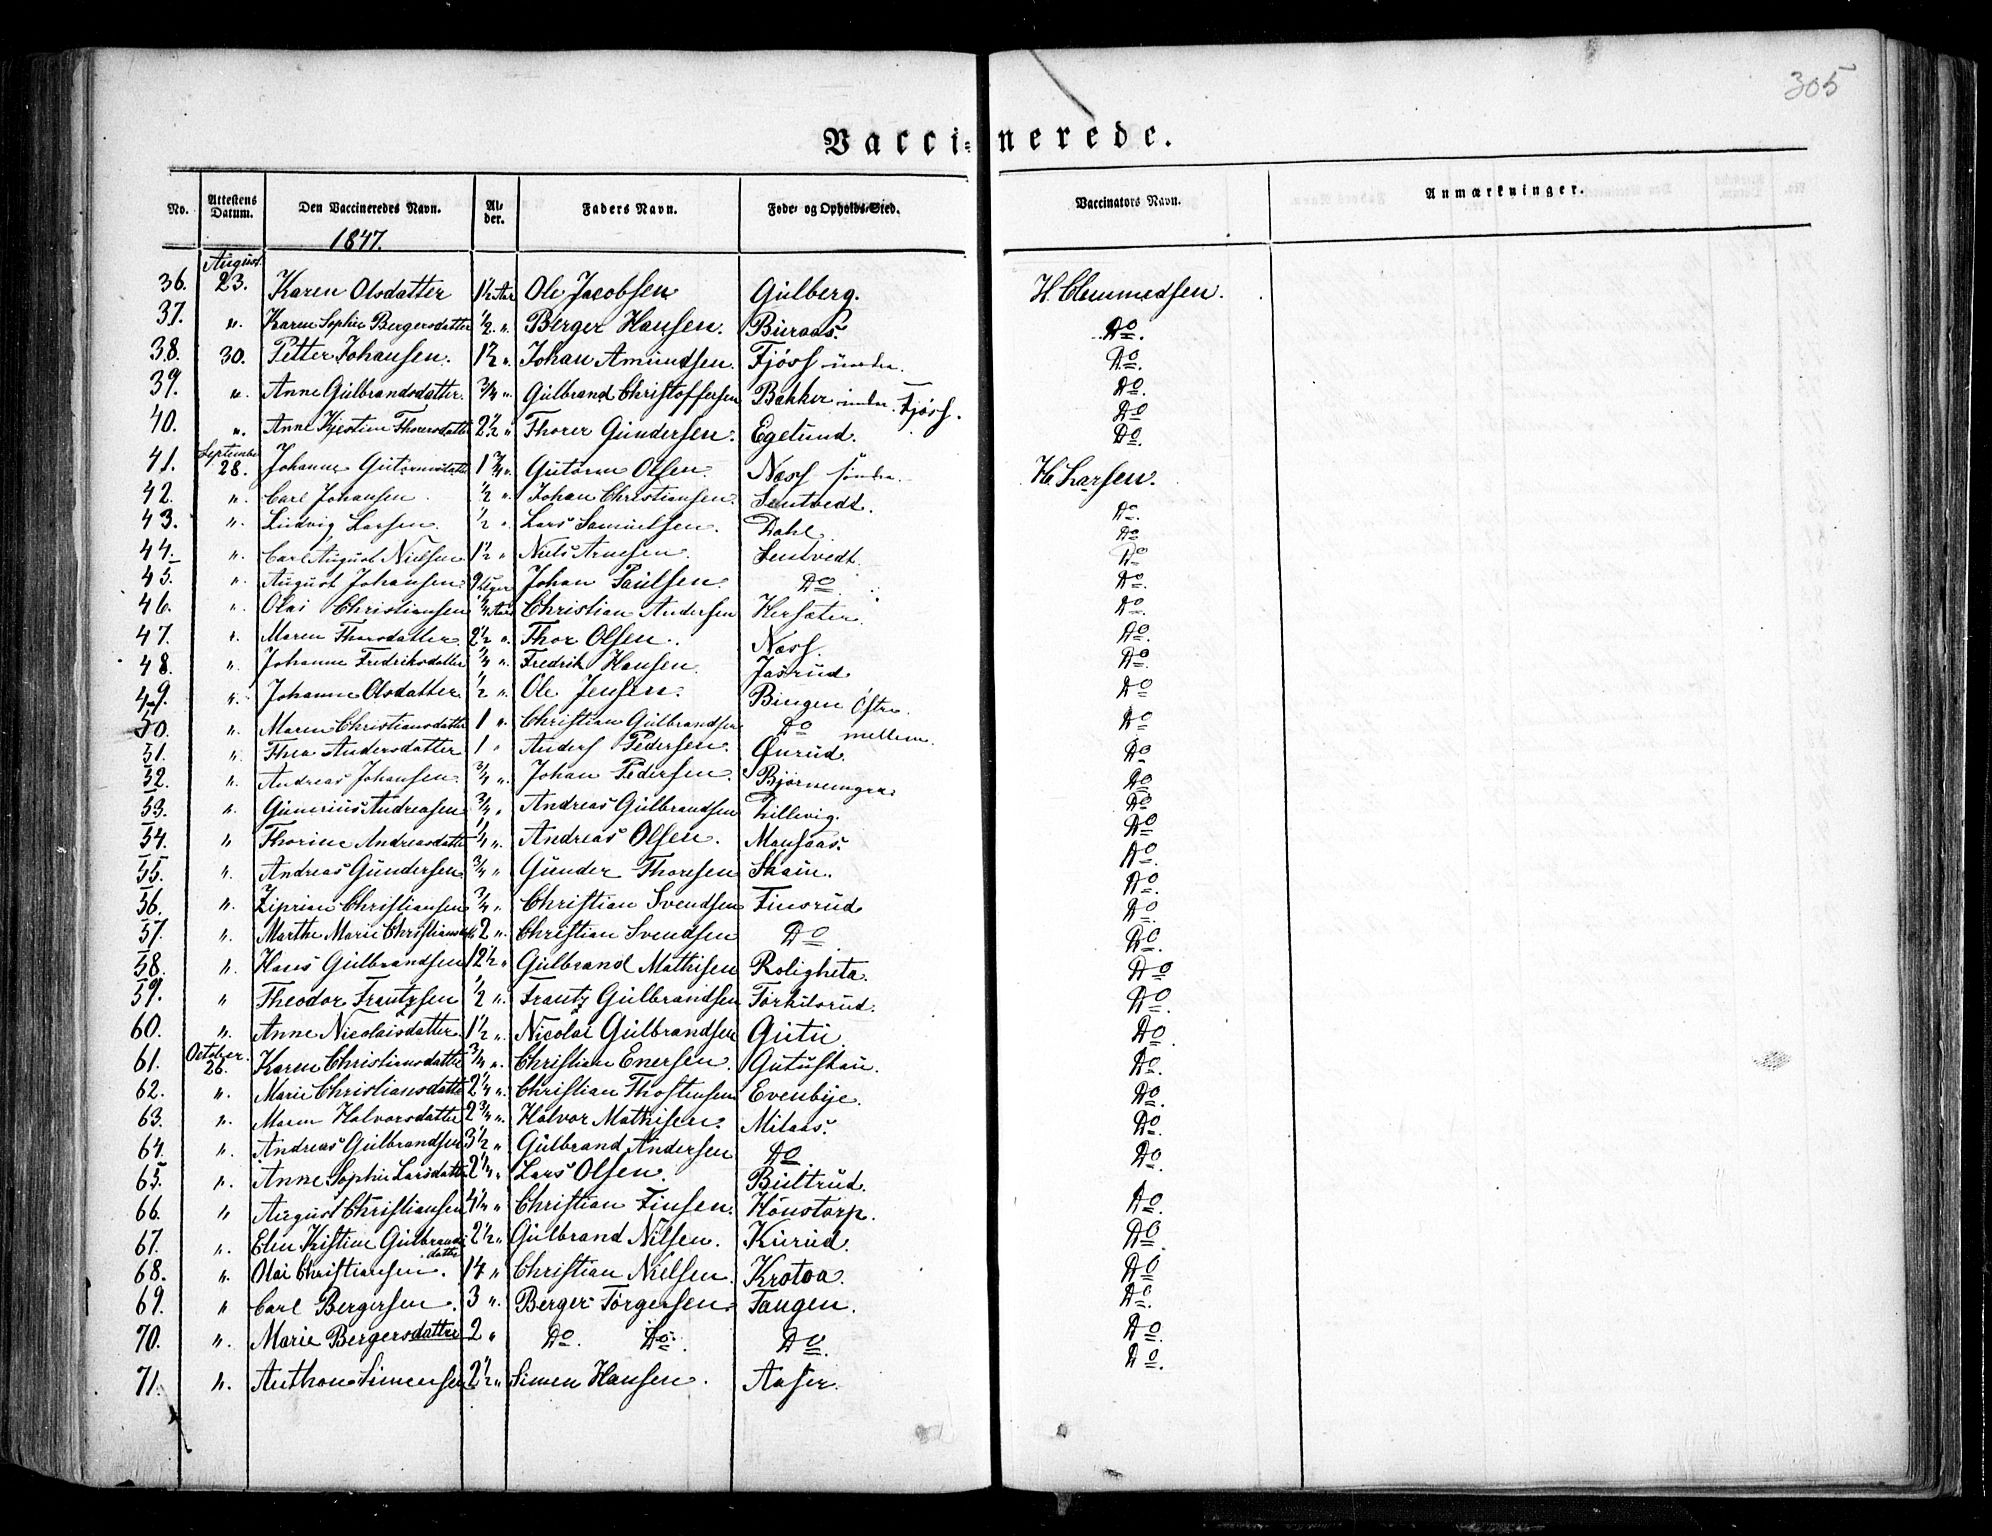 305
Vacci=nerede.
No. Attestens Datum. Den Vaccineredes Navn. Al-der. Faders Navn. Føde- og Opholds-Sted. Vaccinators Navn. Anmærkninger.
1847.
August
36. 23. Karen Olsdatter 1½ Aar Ole Jacobsen Gulberg. H. Clemmedsen.
37. ". Karen Sophie Bergersdatter ½ ". Berger Hansen. Buraas. Do.
38. 30. Petter Johansen. 1½ ". Johan Amundsen. Fjøss Do.
39. ". Anne Gulbrandsdatter. ¾ ". Gulbrand Christoffersen Bakker Fjøss. Do.
40. ". Anne Kjestine Thorersdatter 2½ " Thorer Gundersen. Egelund. Do.
Do.
September
41. 28. Johanne Gutormsdatter 1¾ ". Gutorm Olsen. Næss søndre. H. Larsen.
42. ". Carl Johansen ½ ". Johan Christiansen. Sentvedt.
43. ". Ludvig Larsen. ½ ". Lars Samuelsen. Dahl. Do.
44. ". Carl August Nielsen 1½ " Niels Arnesen. Sentvedt. Do
45. " August Johansen 9 Uger Johan Paulsen. Do Do
46. " Olai Christiansen ¼ Aar Christian Andersen Hersæter. Do.
47. ". Maren Thorsdatter. 2½ ". Thor Olsen. Næss. Do.
48. ". Johanne Fredriksdatter ¼ ". Fredrik Hansen Jasrud Do.
49. ". Johanne Olsdatter ½ ". Ole Jensen. Bingen Østre. Do.
50. ". Maren Christiansdatter 1 ". Christian Gulbrandsen Do mellem. Do
51. ". Thea Andersdatter 1 " Anders Pedersen. Ønrud. Do
52. ". Andreas Johansen. ¾ ". Johan Pedersen. Do
53. ". Gunerius Andreasen ¾ " Andreas Gulbrandsen Lillevig. Do
54. " Thorine Andreasdatter ¼ ". Andreas Olsen. Mansaas. Do.
55. ". Andreas Gundersen ¾ " Gunder Thoresen Skaiu. Do.
56. ". Ziprian Christiansen ¾ ". Christian Svendsen Finsrud Do.
57. ". Marthe Marie Christiansd. 2 ". Christian Svendsen Do Do
58. ". Hans Gulbrandsen 12½ " Gulbrand Mathisen Roligheta. Do.
59. " Theodor Frantzsen ½ ". Frantz Gulbrandsen Torkilsrud. Do
60. ". Anne Nicolaisdatter. 1½ ". Nicolai Gulbrandsen Gutu. Do.
October
61. 26. Karen Christiansdatter ¾ ". Christian Enersen. Gutuskau. Do.
62. ". Marie Christiansdatter 2¼ ". Christian Thostensen Evenbye. Do.
63. ". Maren Halvorsdatter 2¾ ". Halvor Mathisen. Milaas. Do.
64. ". Andreas Gulbrandsen 3½ " Gulbrand Andersen Do Do.
65. ". Anne Sophie Larsdatter 2¼ " Lars Olsen. Bultrud. Do
66. " August Christiansen 4¼ " Christian Finsen. Hønstorp. Do.
67. ". Elen Kristine Gulbrands-datter 2½ " Gulbrand Nilsen. Kurud. Do.
68. ". Olai Christiansen. 14 " Christian Nielsen. Krotoa. Do
69. " Carl Bergersen. 3 ". Berger Torgersen. Tangen. Do.
70. ". Marie Bergersdatter 2 " Do. Do. Do. Do.
71. ". Anthon Simensen 2½ " Simen Hansen. Aaser. Do.